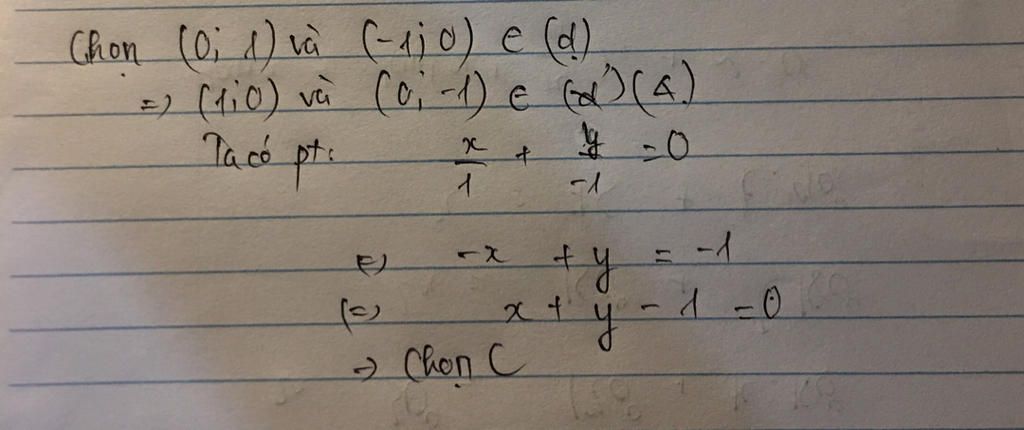 Chọn (0; 1) và (-1; 0) ∈ (d)
=> (1; 0) và (0; -1) ∈ (d') (Δ)
Ta có pt: x/1 + y/-1 = 0
<=> -x + y = -1
<=> x + y - 1 = 0
→ Chọn C